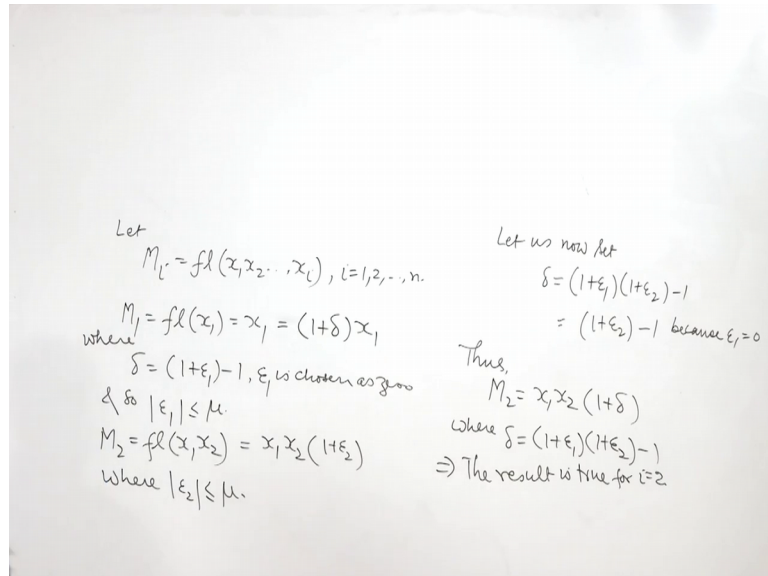 Let
M_i = fl(x_1 x_2 ..., x_i), i=1,2,..,n.
M_1 = fl(x_1) = x_1 = (1+δ)x_1
where
δ = (1+ε_1)-1, ε_1 is chosen as zero
& so |ε_1| ≤ μ.
M_2 = fl(x_1 x_2) = x_1 x_2 (1+ε_2)
where |ε_2| ≤ μ.
Let us now set
δ = (1+ε_1)(1+ε_2)-1
= (1+ε_2)-1 because ε_1=0
Thus,
M_2 = x_1 x_2 (1+δ)
where δ = (1+ε_1)(1+ε_2)-1
⇒ The result is true for i=2